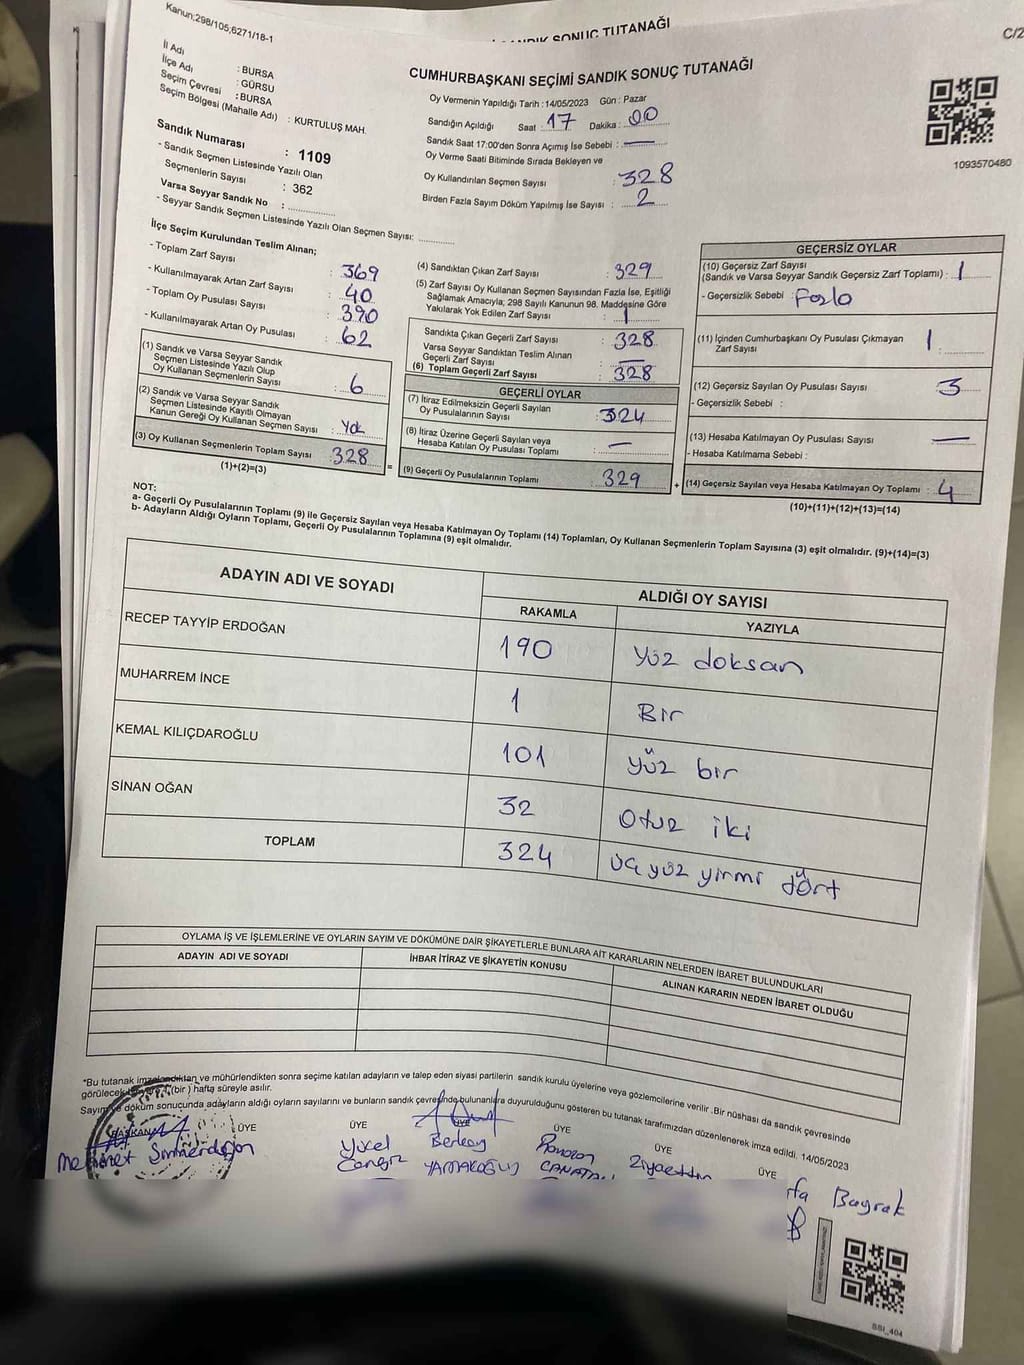 SANDIK SONUÇ TUTANAĞI
Kanun;298/105,6271/18-1
C/2
CUMHURBAŞKANI SEÇİMİ SANDIK SONUÇ TUTANAĞI
İl Adı : BURSA
İlçe Adı : GÜRSU
Seçim Çevresi : BURSA
Seçim Bölgesi (Mahalle Adı) : KURTULUŞ MAH.
Sandık Numarası : 1109
- Sandık Seçmen Listesinde Yazılı Olan
Seçmenlerin Sayısı : 362
Varsa Seyyar Sandık No : ...............
- Seyyar Sandık Seçmen Listesinde Yazılı Olan Seçmen Sayısı: ............
Oy Vermenin Yapıldığı Tarih : 14/05/2023 Gün : Pazar
Sandığın Açıldığı Saat : 17 Dakika : 00
Sandık Saat 17:00'den Sonra Açımış İse Sebebi : —
Oy Verme Saati Bitiminde Sırada Bekleyen ve
Oy Kullandırılan Seçmen Sayısı : 328
Birden Fazla Sayım Döküm Yapılmış İse Sayısı : 2
1093570480
İlçe Seçim Kurulundan Teslim Alınan;
- Toplam Zarf Sayısı : 369
- Kullanılmayarak Artan Zarf Sayısı : 40
- Toplam Oy Pusulası Sayısı : 390
- Kullanılmayarak Artan Oy Pusulası : 62
(1) Sandık ve Varsa Seyyar Sandık
Seçmen Listesinde Yazılı Olup
Oy Kullanan Seçmenlerin Sayısı : 6
(2) Sandık ve Varsa Seyyar Sandık
Seçmen Listesinde Kayıtlı Olmayan
Kanun Gereği Oy Kullanan Seçmen Sayısı : Yok
(3) Oy Kullanan Seçmenlerin Toplam Sayısı : 328
(1)+(2)=(3)
=
(4) Sandıktan Çıkan Zarf Sayısı : 329
(5) Zarf Sayısı Oy Kullanan Seçmen Sayısından Fazla İse, Eşitliği
Sağlamak Amacıyla; 298 Sayılı Kanunun 98. Maddesine Göre
Yakılarak Yok Edilen Zarf Sayısı : 1
Sandıkta Çıkan Geçerli Zarf Sayısı : 328
Varsa Seyyar Sandıktan Teslim Alınan
Geçerli Zarf Sayısı : —
(6) Toplam Geçerli Zarf Sayısı : 328
GEÇERLİ OYLAR
(7) İtiraz Edilmeksizin Geçerli Sayılan
Oy Pusulalarının Sayısı : 324
(8) İtiraz Üzerine Geçerli Sayılan veya
Hesaba Katılan Oy Pusulası Toplamı : —
(9) Geçerli Oy Pusulalarının Toplamı : 329
+
GEÇERSİZ OYLAR
(10) Geçersiz Zarf Sayısı
(Sandık ve Varsa Seyyar Sandık Geçersiz Zarf Toplamı) : 1
- Geçersizlik Sebebi : Fazla
(11) İçinden Cumhurbaşkanı Oy Pusulası Çıkmayan
Zarf Sayısı : 1
(12) Geçersiz Sayılan Oy Pusulası Sayısı : 3
- Geçersizlik Sebebi :
(13) Hesaba Katılmayan Oy Pusulası Sayısı : —
- Hesaba Katılmama Sebebi :
(14) Geçersiz Sayılan veya Hesaba Katılmayan Oy Toplamı : 4
(10)+(11)+(12)+(13)=(14)
NOT:
a- Geçerli Oy Pusulalarının Toplamı (9) ile Geçersiz Sayılan veya Hesaba Katılmayan Oy Toplamı (14) Toplamları, Oy Kullanan Seçmenlerin Toplam Sayısına (3) eşit olmalıdır. (9)+(14)=(3)
b- Adayların Aldığı Oyların Toplamı, Geçerli Oy Pusulalarının Toplamına (9) eşit olmalıdır.
ADAYIN ADI VE SOYADI ALDIĞI OY SAYISI
RAKAMLA YAZIYLA
RECEP TAYYİP ERDOĞAN 190 Yüz doksan
MUHARREM İNCE 1 Bir
KEMAL KILIÇDAROĞLU 101 Yüz bir
SİNAN OĞAN 32 Otuz iki
TOPLAM 324 Üç yüz yirmi dört
OYLAMA İŞ VE İŞLEMLERİNE VE OYLARIN SAYIM VE DÖKÜMÜNE DAİR ŞİKAYETLERLE BUNLARA AİT KARARLARIN NELERDEN İBARET BULUNDUKLARI
ADAYIN ADI VE SOYADI İHBAR İTİRAZ VE ŞİKAYETİN KONUSU ALINAN KARARIN NEDEN İBARET OLDUĞU
*Bu tutanak imzalandıktan ve mühürlendikten sonra seçime katılan adayların ve talep eden siyasi partilerin sandık kurulu üyelerine veya gözlemcilerine verilir. Bir nüshası da sandık çevresinde
görülecek bir yere 1 (bir) hafta süreyle asılır.
Sayım ve döküm sonucunda adayların aldığı oyların sayılarını ve bunların sandık çevresinde bulunanlara duyurulduğunu gösteren bu tutanak tarafımızdan düzenlenerek imza edildi. 14/05/2023
BAŞKAN ÜYE ÜYE ÜYE ÜYE ÜYE ÜYE
Yücel Berkay Ramazan Ziyaettin
Mehmet Cengiz YAMAKOĞLU Bayrak
SSI_404